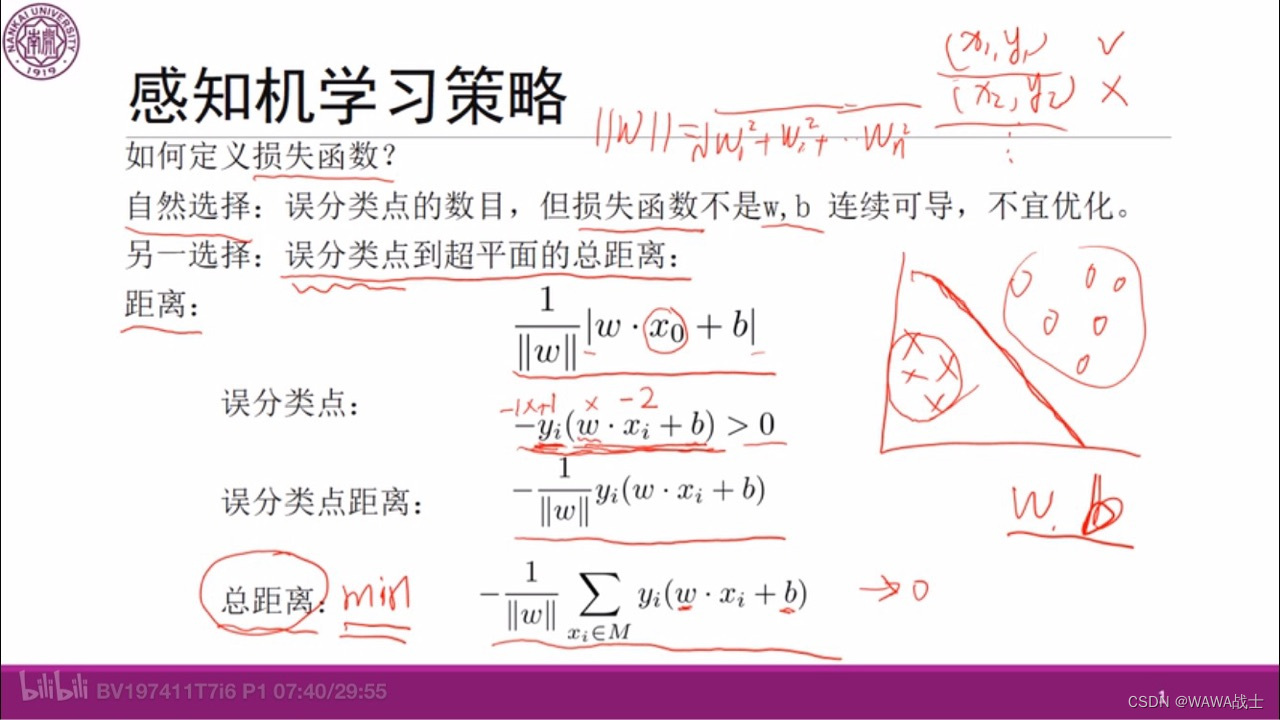 NANKAI UNIVERSITY
南開
1919
感知机学习策略
||W|| = √W₁²+W₂²+…Wn²
(x₁, y₁) √
(x₂, y₂) ×
⋮
如何定义损失函数？
自然选择：误分类点的数目，但损失函数不是w,b 连续可导，不宜优化。
另一选择：误分类点到超平面的总距离：
距离： 1/‖w‖ |w · x₀ + b|
-1×+1 × -2
误分类点： −yᵢ(w · xᵢ + b) > 0
误分类点距离： − 1/‖w‖ yᵢ(w · xᵢ + b)
w. b
总距离： min − 1/‖w‖ ∑xᵢ∈M yᵢ(w · xᵢ + b) → 0
bilibili BV197411T7i6 P1 07:40/29:55
1
CSDN @WAWA战士